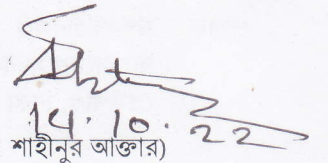 14.10.22
শাহীনুর আক্তার)